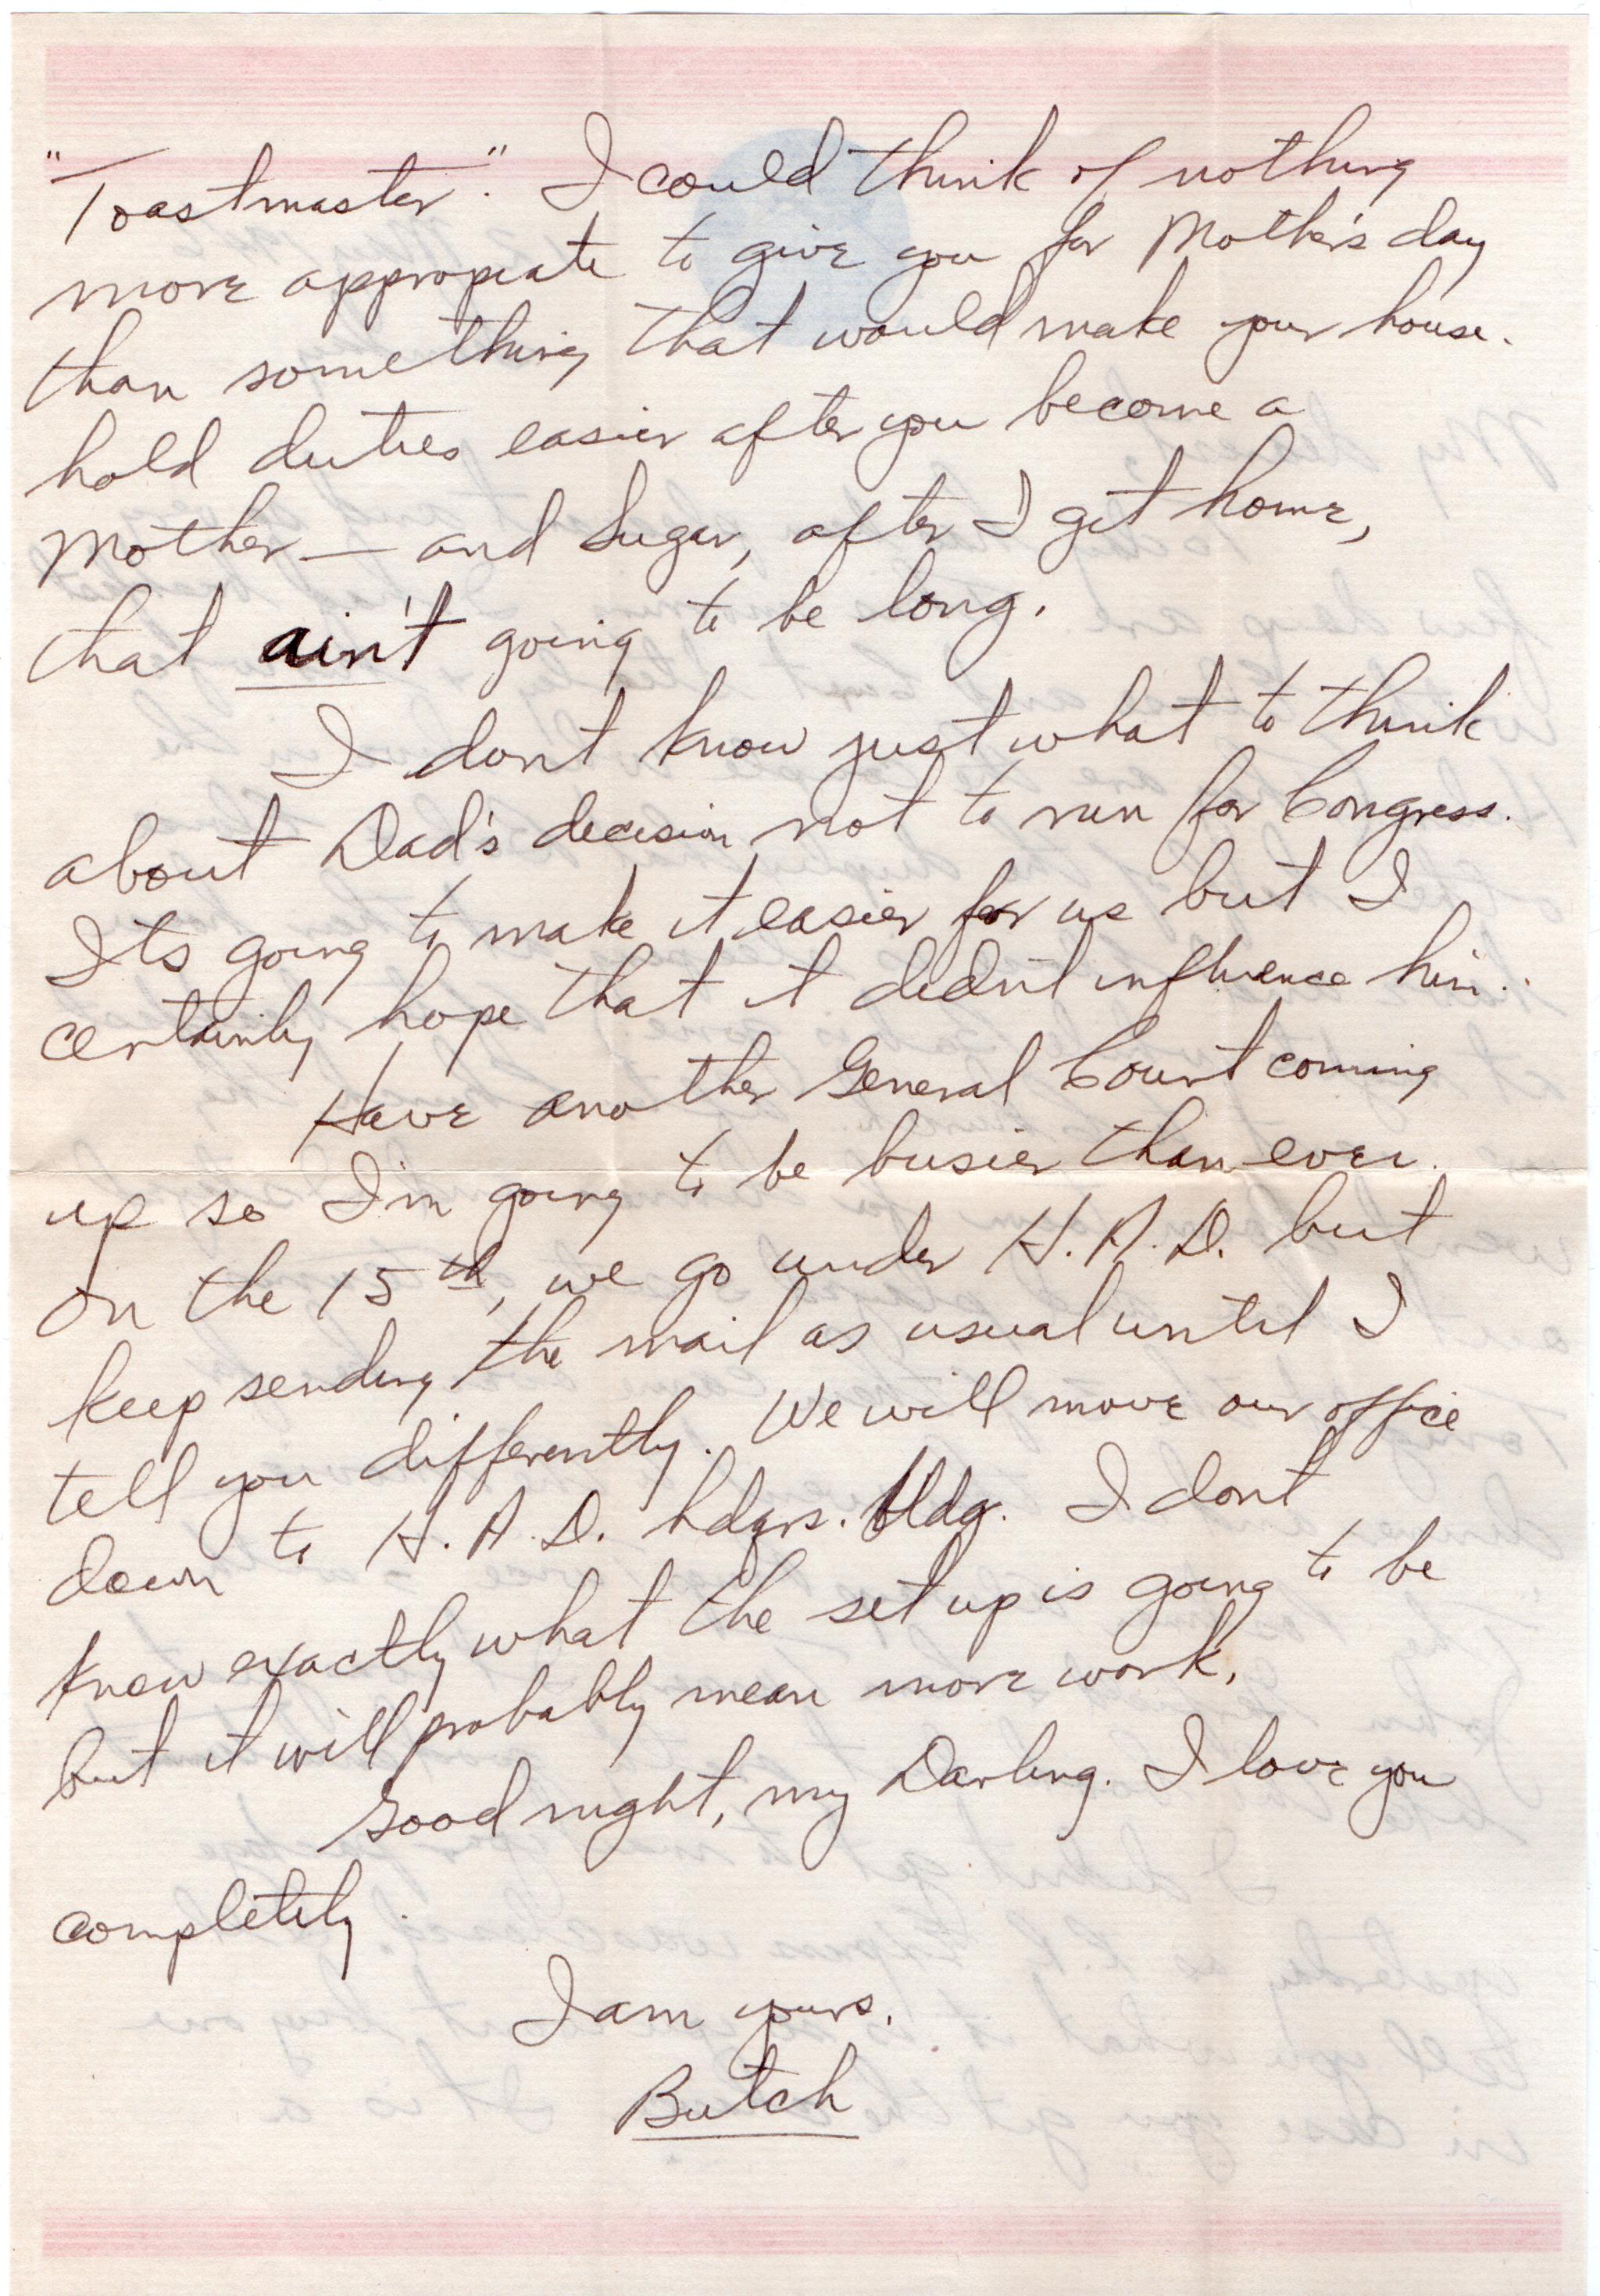 "Toastmaster". I could think of nothing
more appropiate to give you for Mother's day
than something that would make your house-
hold duties easier after you become a
Mother — and Sugar, after I get home,
that ain't going to be long.
I don't know just what to think
about Dad's decision not to run for Congress.
Its going to make it easier for us but I
certainly hope that it didn't influence him.
Have another General Court coming
up so I'm going to be busier than ever.
On the 15th, we go under H.A.D. but
keep sending the mail as usual until I
tell you differently. We will move our office
down to H.A.D. hdqrs. bldg. I don't
know exactly what the set up is going to be
but it will probably mean more work.
Good night, my Darling. I love you
completely.
I am yours.
Butch